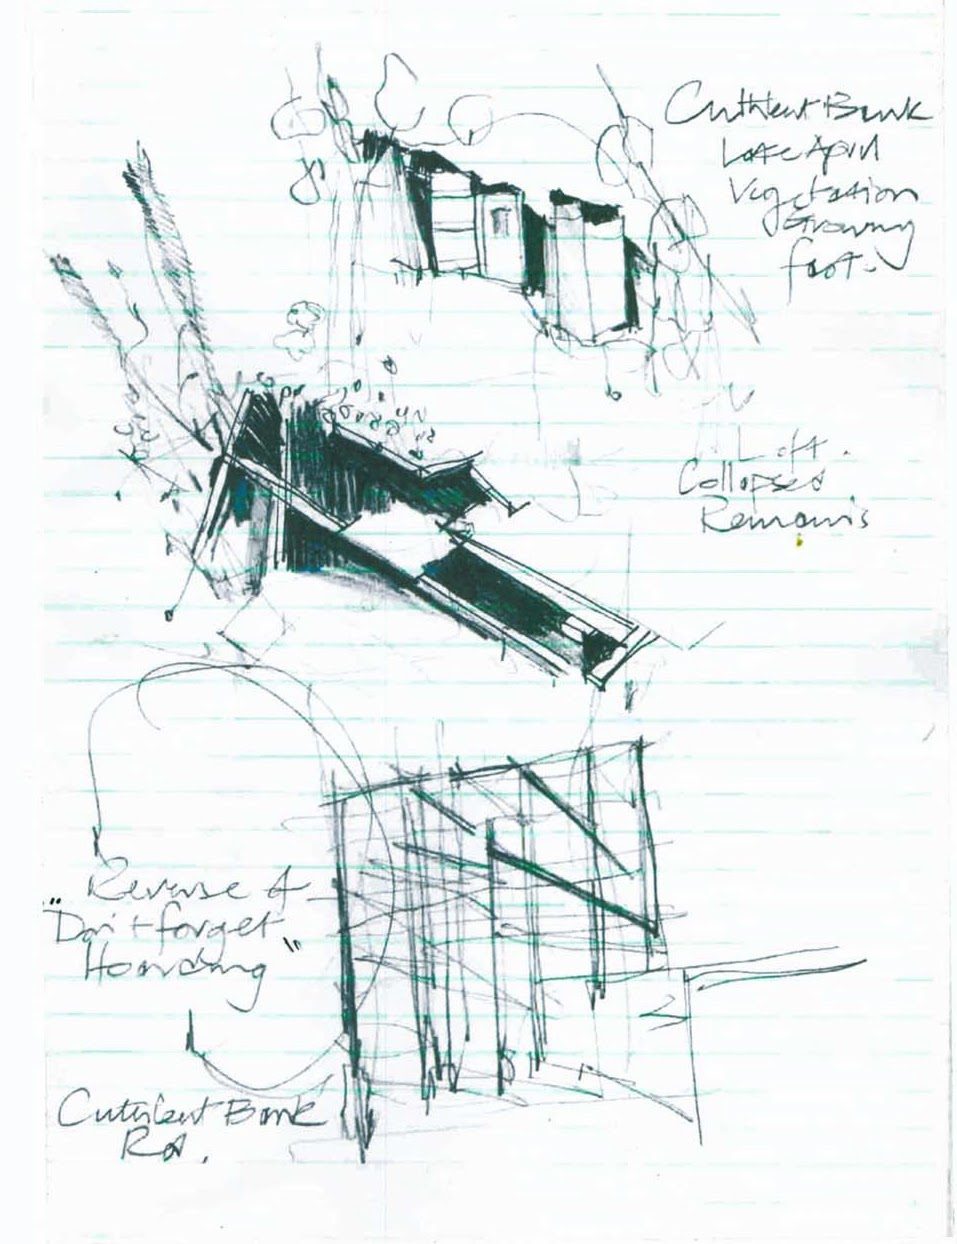 Cuthbert Bank
Late April
Vegetation
Growing
fast.
Loft.
Collapsed
Remains
Reverse of
"Don't forget"
Hoarding
Cuthbert Bank
Rd.